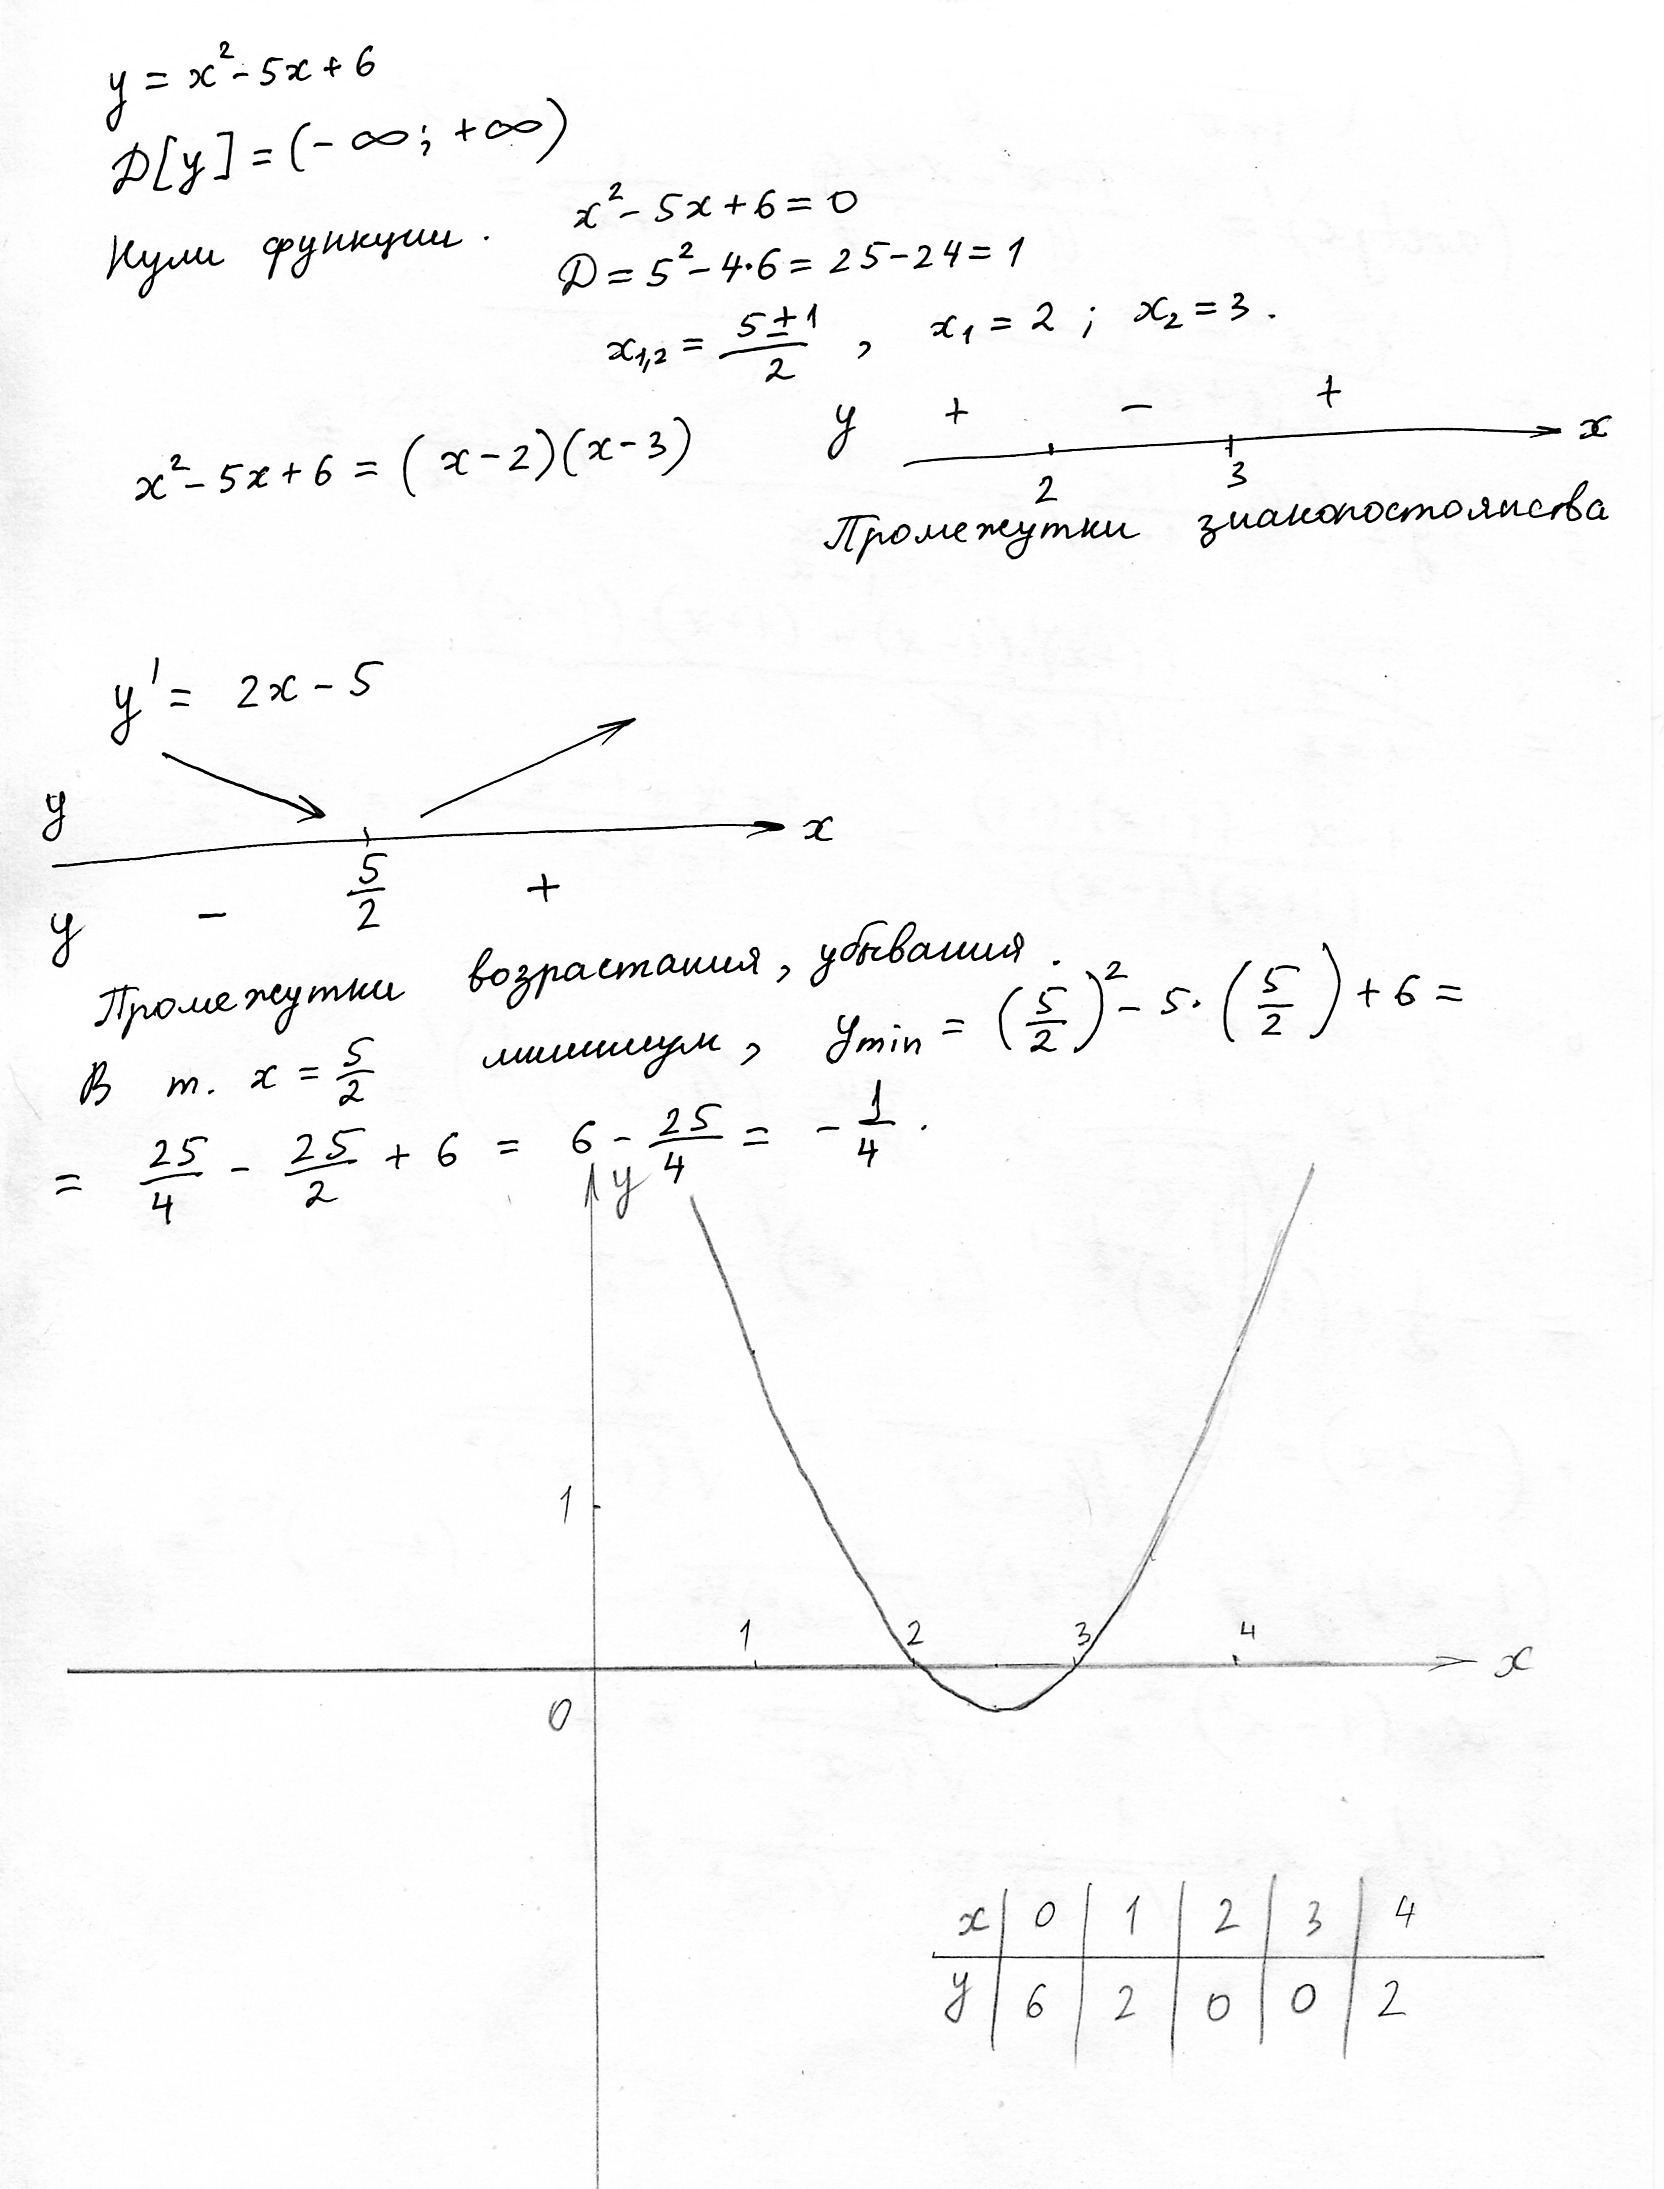 y = x² - 5x + 6
D[y] = (-∞; +∞)
Нули функции. x² - 5x + 6 = 0
D = 5² - 4·6 = 25 - 24 = 1
x₁,₂ = (5±1)/2 , x₁ = 2 ; x₂ = 3.
x² - 5x + 6 = (x - 2)(x - 3)
y + - + x
2 3
Промежутки знакопостоянства
y' = 2x - 5
y x
5/2
y - +
Промежутки возрастания, убывания.
В т. x = 5/2 минимум, ymin = (5/2)² - 5·(5/2) + 6 =
= 25/4 - 25/2 + 6 = 6 - 25/4 = -1/4.
y
1
1 2 3 4 x
0
x 0 1 2 3 4
y 6 2 0 0 2